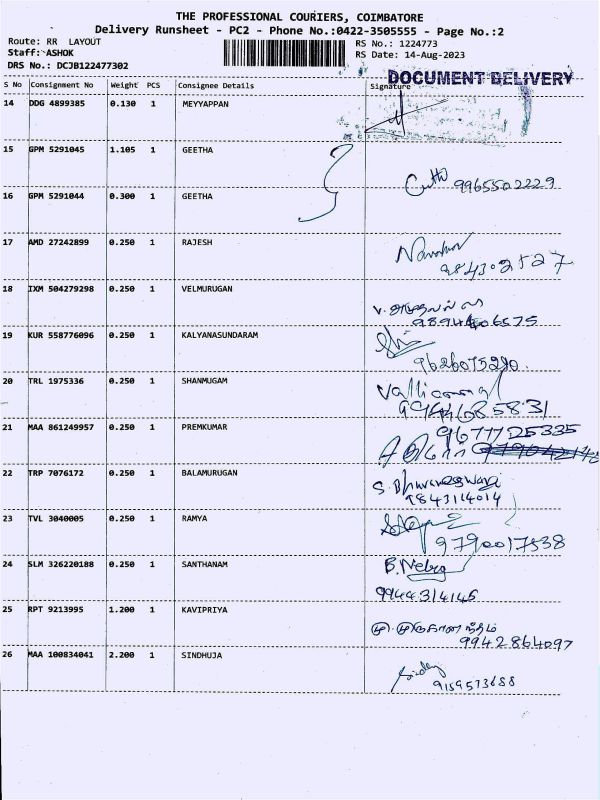 THE PROFESSIONAL COURIERS, COIMBATORE
Delivery Runsheet - PC2 - Phone No.:0422-3505555 - Page No.:2
Route: RR LAYOUT RS No.: 1224773
Staff: ASHOK RS Date: 14-Aug-2023
DRS No.: DCJB122477302
DOCUMENT DELIVERY
S No Consignment No Weight PCS Consignee Details Signature
14 DDG 4899385 0.130 1 MEYYAPPAN
15 GPM 5291045 1.105 1 GEETHA
9965502229
16 GPM 5291044 0.300 1 GEETHA
17 AMD 27242899 0.250 1 RAJESH
18 IXM 504279298 0.250 1 VELMURUGAN
19 KUR 558776096 0.250 1 KALYANASUNDARAM
9626075290
20 TRL 1975336 0.250 1 SHANMUGAM
21 MAA 861249957 0.250 1 PREMKUMAR
9677725335
22 TRP 7076172 0.250 1 BALAMURUGAN
S. Bhuvaneswari
9843114014
23 TVL 3040005 0.250 1 RAMYA
9790017538
24 SLM 326220188 0.250 1 SANTHANAM
9944314145
25 RPT 9213995 1.200 1 KAVIPRIYA
9942864097
26 MAA 100834041 2.200 1 SINDHUJA
9159573688